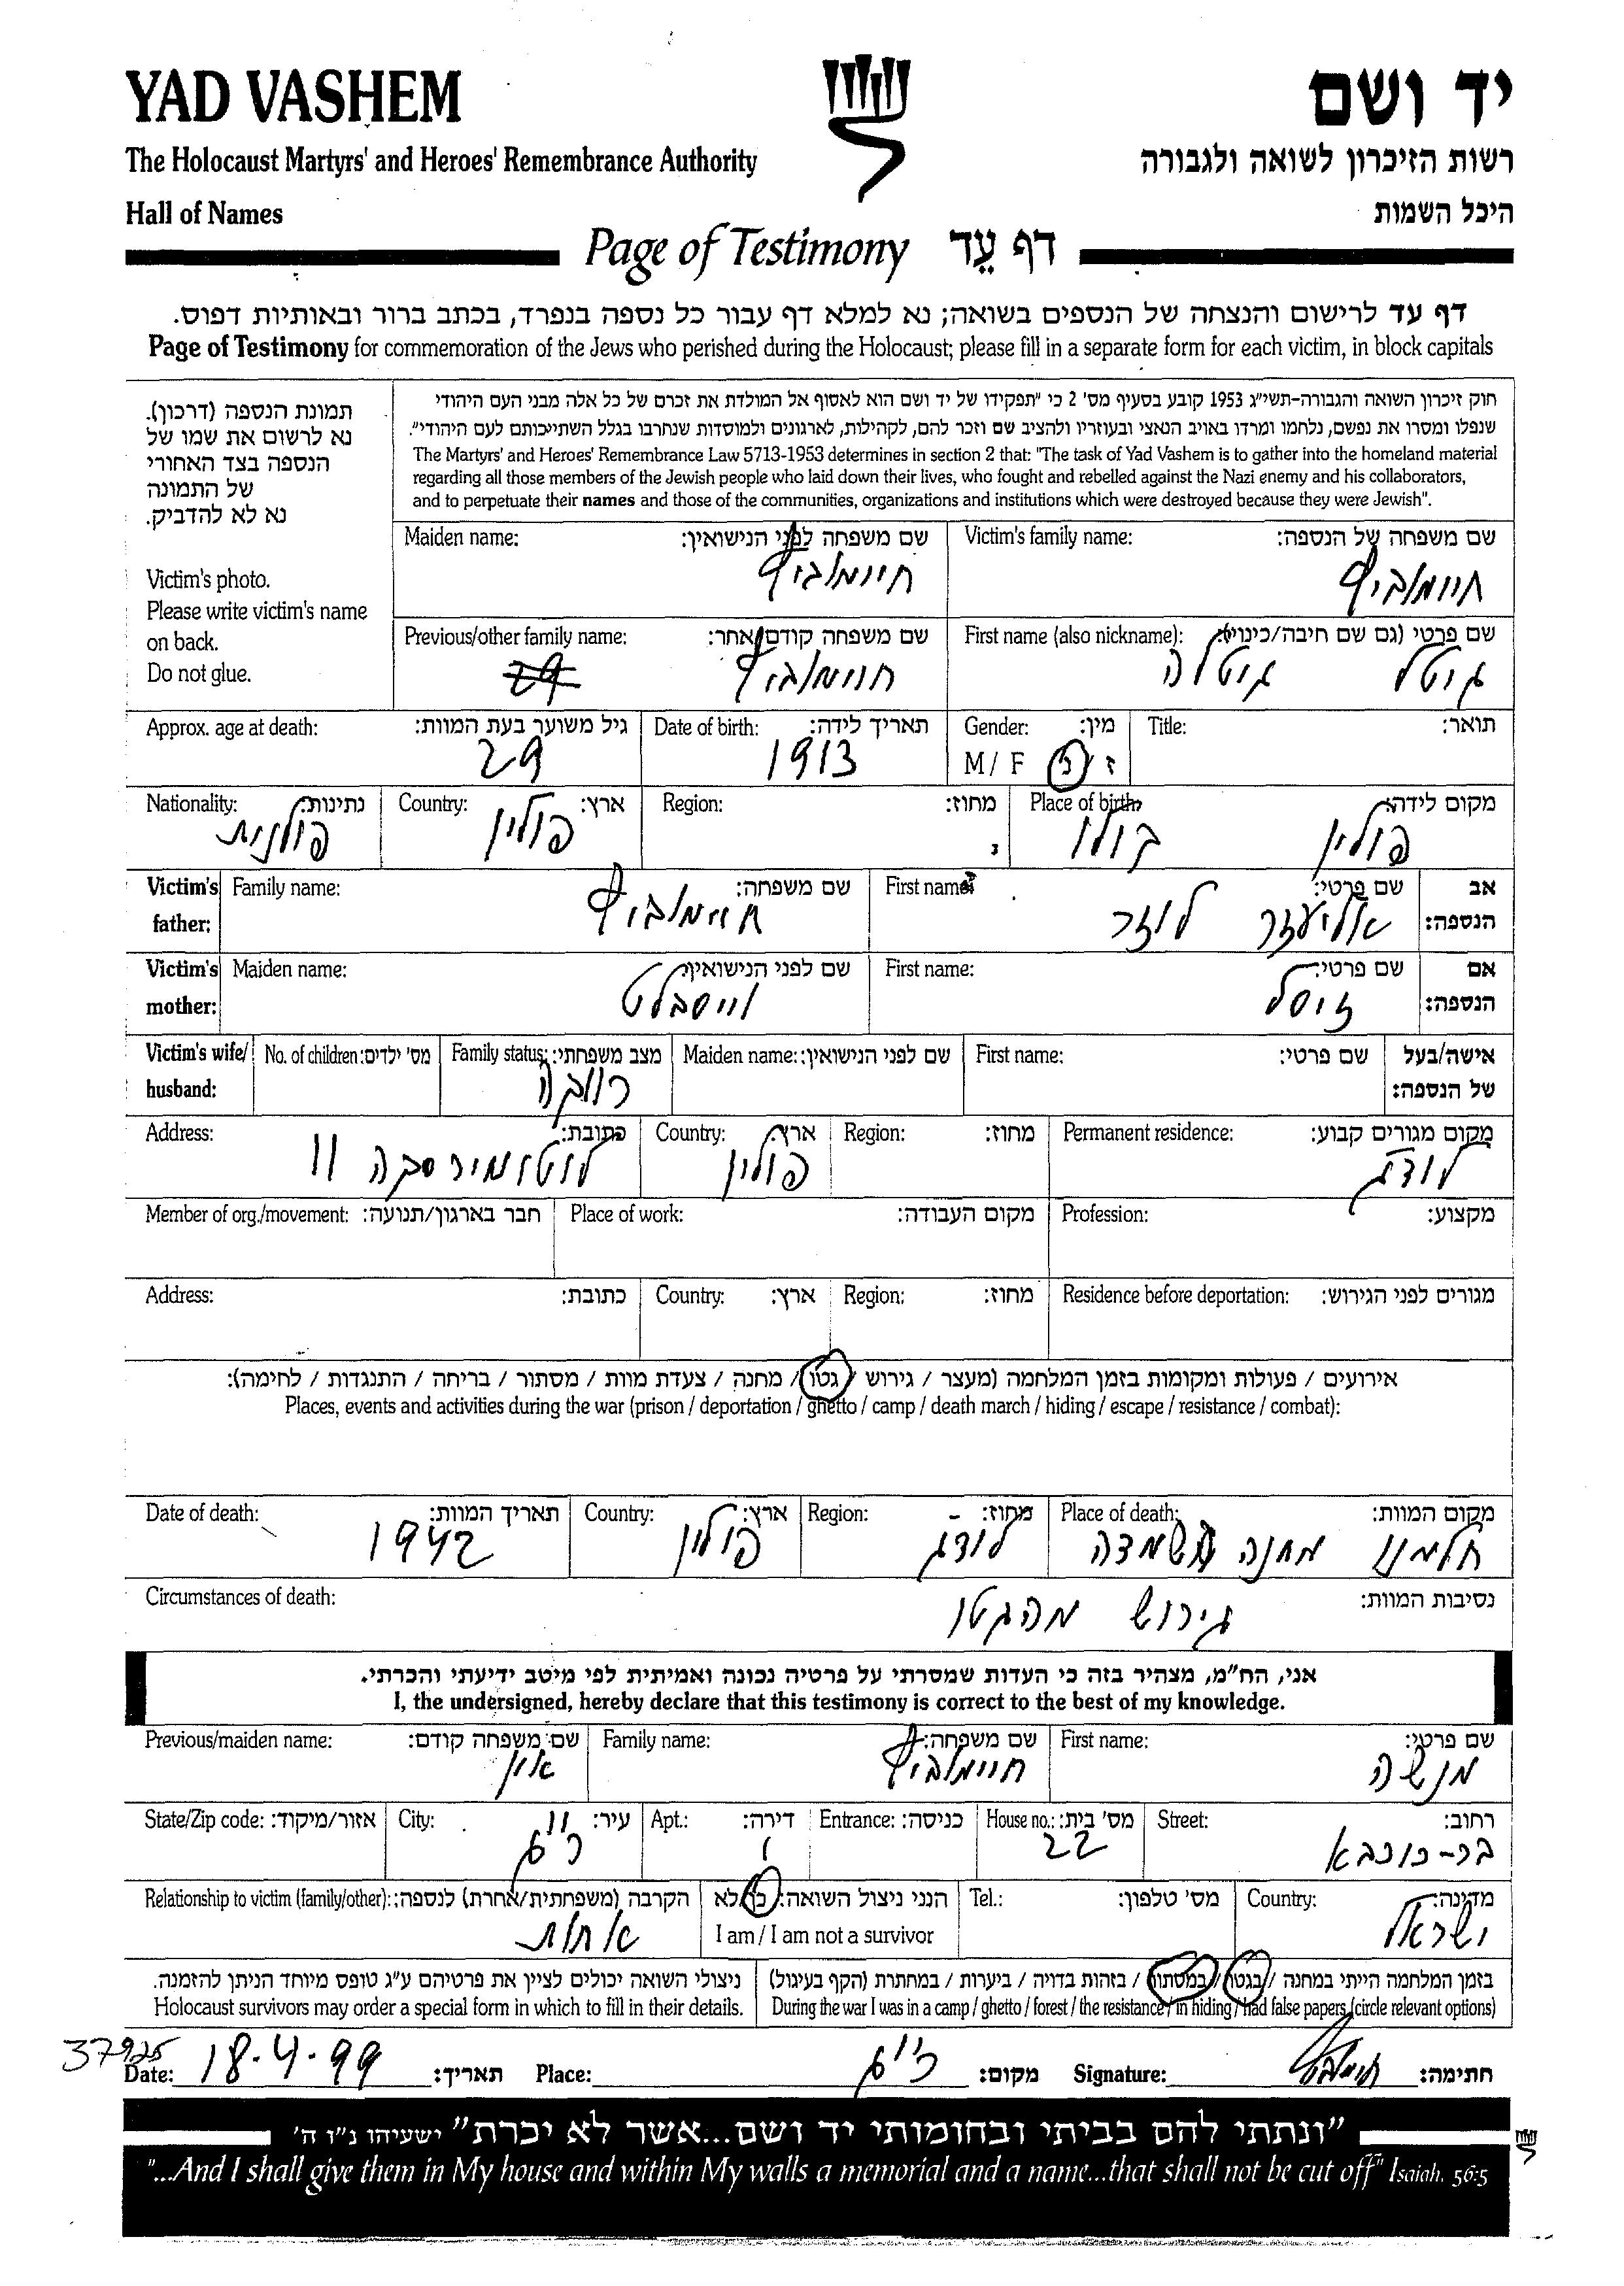 YAD VASHEM
יד ושם
The Holocaust Martyrs' and Heroes' Remembrance Authority
רשות הזיכרון לשואה ולגבורה
Hall of Names
היכל השמות
Page of Testimony דף עֵד
דף עד לרישום והנצחה של הנספים בשואה; נא למלא דף עבור כל נספה בנפרד, בכתב ברור ובאותיות דפוס.
Page of Testimony for commemoration of the Jews who perished during the Holocaust; please fill in a separate form for each victim, in block capitals
תמונת הנספה (דרכון).
נא לרשום את שמו של
הנספה בצד האחורי
של התמונה
נא לא להדביק.
Victim's photo.
Please write victim's name
on back.
Do not glue.
חוק זיכרון השואה והגבורה-תשי"ג 1953 קובע בסעיף מס' 2 כי "תפקידו של יד ושם הוא לאסוף אל המולדת את זכרם של כל אלה מבני העם היהודי
שנפלו ומסרו את נפשם, נלחמו ומרדו באויב הנאצי ובעוזריו ולהציב שם וזכר להם, לקהילות, לארגונים ולמוסדות שנחרבו בגלל השתייכותם לעם היהודי".
The Martyrs' and Heroes' Remembrance Law 5713-1953 determines in section 2 that: "The task of Yad Vashem is to gather into the homeland material
regarding all those members of the Jewish people who laid down their lives, who fought and rebelled against the Nazi enemy and his collaborators,
and to perpetuate their names and those of the communities, organizations and institutions which were destroyed because they were Jewish".
שם משפחה של הנספה: Victim's family name: שם משפחה לפני הנישואין: Maiden name:
חיימוביץ חיימוביץ
שם פרטי (גם שם חיבה/כינוי): First name (also nickname): שם משפחה קודם/אחר: Previous/other family name:
גיטל גיטלה חיימוביץ 29
תואר: Title: מין: Gender: תאריך לידה: Date of birth: גיל משוער בעת המוות: Approx. age at death:
ז / נ M / F 1913 29
מקום לידה: Place of birth: מחוז: Region: ארץ: Country: נתינות: Nationality:
פולין פולין פולנית
אב הנספה: שם פרטי: First name: שם משפחה: Family name: Victim's father:
אליעזר לוזר חיימוביץ
אם הנספה: שם פרטי: First name: שם לפני הנישואין: Maiden name: Victim's mother:
זיסל וייסבלט
אישה/בעל של הנספה: שם פרטי: First name: שם לפני הנישואין: Maiden name: מצב משפחתי: Family status: מס' ילדים: No. of children: Victim's wife/ husband:
רווקה
מקום מגורים קבוע: Permanent residence: מחוז: Region: ארץ: Country: כתובת: Address:
לודג' פולין לוטומירסקה 11
מקצוע: Profession: מקום העבודה: Place of work: חבר בארגון/תנועה: Member of org./movement:
מגורים לפני הגירוש: Residence before deportation: מחוז: Region: ארץ: Country: כתובת: Address:
אירועים / פעולות ומקומות בזמן המלחמה (מעצר / גירוש / גטו / מחנה / צעדת מוות / מסתור / בריחה / התנגדות / לחימה):
Places, events and activities during the war (prison / deportation / ghetto / camp / death march / hiding / escape / resistance / combat):
מקום המוות: Place of death: מחוז: Region: ארץ: Country: תאריך המוות: Date of death:
חלמנו מחנה השמדה לודג' פולין 1942
נסיבות המוות: Circumstances of death:
גירוש מהגטו
אני, הח"מ, מצהיר בזה כי העדות שמסרתי על פרטיה נכונה ואמיתית לפי מיטב ידיעתי והכרתי.
I, the undersigned, hereby declare that this testimony is correct to the best of my knowledge.
שם פרטי: First name: שם משפחה: Family name: שם משפחה קודם: Previous/maiden name:
מנשה חיימוביץ אין
רחוב: Street: מס' בית: House no.: כניסה: Entrance: דירה: Apt.: עיר: City: אזור/מיקוד: State/Zip code:
בר-כוכבא 22 1 ר"ג
מדינה: Country: מס' טלפון: Tel.: הנני ניצול השואה: כן/לא הקרבה (משפחתית/אחרת) לנספה: Relationship to victim (family/other):
ישראל I am / I am not a survivor אחות
בזמן המלחמה הייתי במחנה / בגטו / במסתור / בזהות בדויה / ביערות / במחתרת (הקף בעיגול)
During the war I was in a camp / ghetto / forest / the resistance / in hiding / had false papers (circle relevant options)
ניצולי השואה יכולים לציין את פרטיהם ע"ג טופס מיוחד הניתן להזמנה.
Holocaust survivors may order a special form in which to fill in their details.
37925
חתימה: Signature: מקום: ר"ג Place: תאריך: 18.4.99 Date:
"ונתתי להם בביתי ובחומותי יד ושם...אשר לא יכרת" ישעיהו נ"ו ה'
"...And I shall give them in My house and within My walls a memorial and a name...that shall not be cut off" Isaiah. 56:5